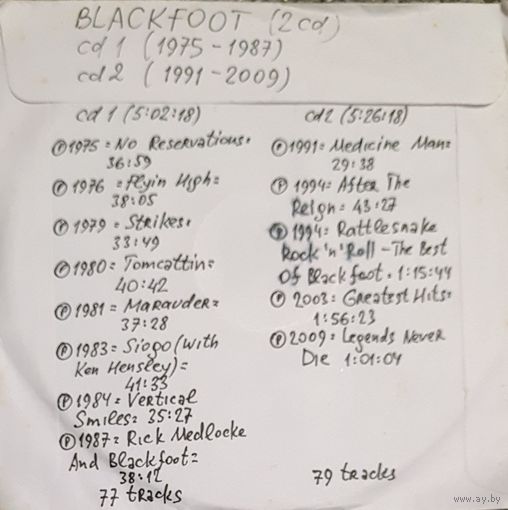 BLACKFOOT (2cd)
cd 1 (1975-1987)
cd 2 (1991-2009)
cd 1 (5:02:18)
℗1975 = No Reservations:
36:59
℗1976 = Flyin High=
38:05
℗1979 = Strikes:
33:49
℗1980 = Tomcattin=
40:42
℗1981 = Marauder=
37:28
℗1983 = Siogo (With
Ken Hensley)=
41:33
℗1984 = Vertical
Smiles: 35:27
℗1987 = Rick Medlocke
And Blackfoot=
38:12
77 tracks
cd2 (5:26:18)
℗1991 = Medicine Man=
29:38
℗1994 = After The
Reign = 43:27
℗1994 = Rattlesnake
Rock 'n' Roll - The Best
Of Blackfoot. 1:15:44
℗2003 = Greatest Hits=
1:56:23
℗2009 = Legends Never
Die 1:01:04
79 tracks
www.ay.by